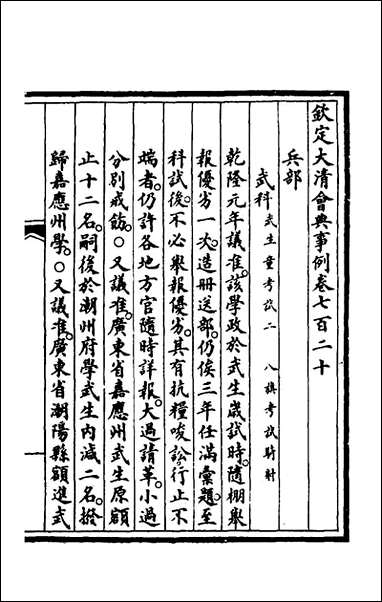 欽定大清會典事例卷七百二十
兵部
武科 武生童考試二 八旗考試騎射
乾隆元年議准。該學政於武生歲試時。隨棚舉
報優劣一次。造冊送部。仍俟三年任滿彙題。至
科試後。不必舉報優劣。其有抗糧唆訟。行止不
端者。仍許各地方官隨時詳報。大過請革。小過
分別戒飭。○又議准。廣東省嘉應州武生原額
止十二名。嗣後於潮州府學武生內減二名。撥
歸嘉應州學。○又議准。廣東省潮陽縣額進武